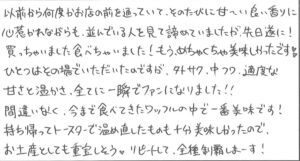 以前から何度かお店の前を通っていて、そのたびに甘〜い良い香りに
心惹かれながらも、並んでいる人を見て諦めていましたが、先日遂に!
買っちゃいました食べちゃいました!もう、めちゃくちゃ美味しかったです!!
ひとつはその場でいただいたのですが、外サク、中フワ、適度な
甘さと温かさ、全てに一瞬でファンになりました!!
間違いなく、今まで食べてきたワッフルの中で一番美味です!
持ち帰ってトースターで温め直したものも十分美味しかったので、
お土産としても重宝しそう♡リピートして、全種制覇しまーす!